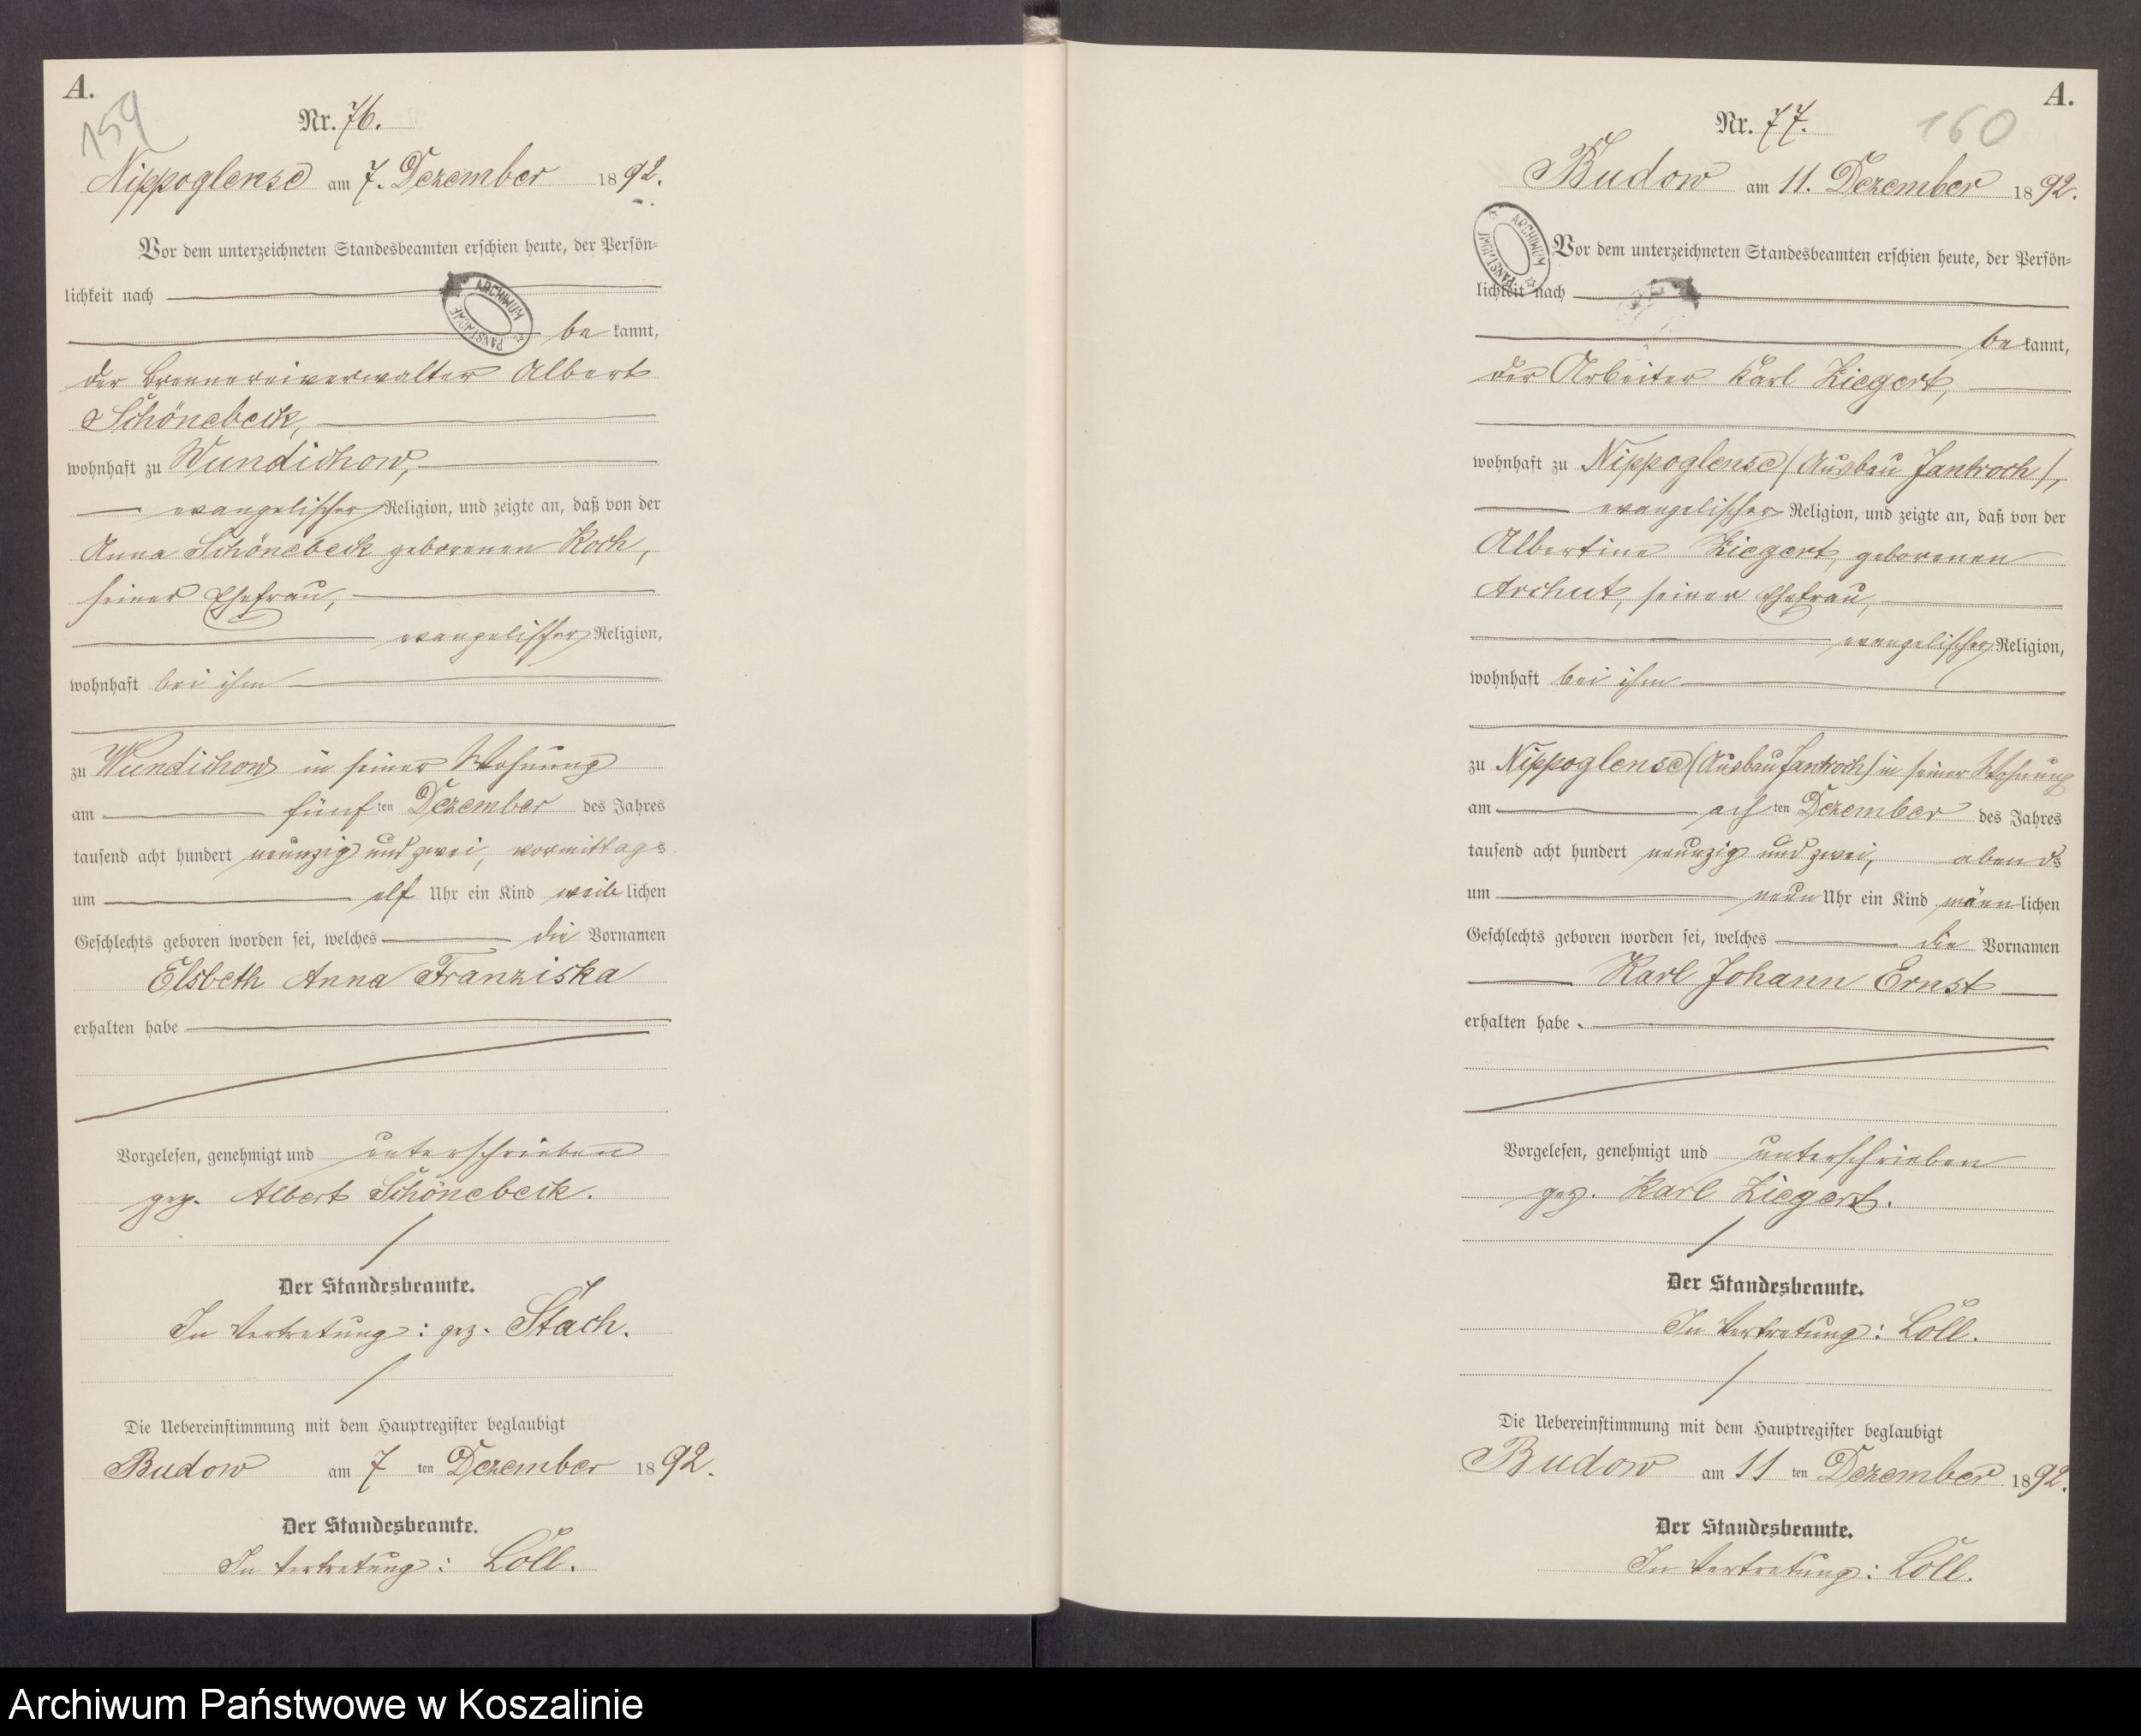 A.
159
Nr. 76.
Nippoglense am 7. Dezember 1892.
Vor dem unterzeichneten Standesbeamten erschien heute, der Persön=
lichkeit nach
ARCHIWUM PAŃSTWOWE
be kannt,
der Brennereiverwalter Albert
Schönebeck,
wohnhaft zu Wundichow,
evangelischer Religion, und zeigte an, daß von der
Anna Schönebeck geborenen Koch,
seiner Ehefrau,
evangelischer Religion,
wohnhaft bei ihm
zu Wundichow in seiner Wohnung
am fünften Dezember des Jahres
tausend acht hundert neunzig und zwei, vormittags
um elf Uhr ein Kind weiblichen
Geschlechts geboren worden sei, welches die Vornamen
Elsbeth Anna Franziska
erhalten habe
Vorgelesen, genehmigt und unterschrieben
gez. Albert Schönebeck.
Der Standesbeamte.
In Vertretung: gez. Stach.
Die Uebereinstimmung mit dem Hauptregister beglaubigt
Budow am 7 ten Dezember 1892.
Der Standesbeamte.
In Vertretung: Löll.
A.
160
Nr. 77.
Budow am 11. Dezember 1892.
ARCHIWUM PAŃSTWOWE
Vor dem unterzeichneten Standesbeamten erschien heute, der Persön=
lichkeit nach
be kannt,
der Arbeiter Karl Ziegert,
wohnhaft zu Nippoglense (Ausbau Jantroch),
evangelischer Religion, und zeigte an, daß von der
Albertine Ziegert, geborenen
Archut, seiner Ehefrau,
evangelischer Religion,
wohnhaft bei ihm
zu Nippoglense (Ausbau Jantroch) in seiner Wohnung
am achten Dezember des Jahres
tausend acht hundert neunzig und zwei, abends
um neun Uhr ein Kind männlichen
Geschlechts geboren worden sei, welches die Vornamen
Karl Johann Ernst
erhalten habe.
Vorgelesen, genehmigt und unterschrieben
gez. Karl Ziegert.
Der Standesbeamte.
In Vertretung: Löll.
Die Uebereinstimmung mit dem Hauptregister beglaubigt
Budow am 11 ten Dezember 1892.
Der Standesbeamte.
In Vertretung: Löll.
Archiwum Państwowe w Koszalinie